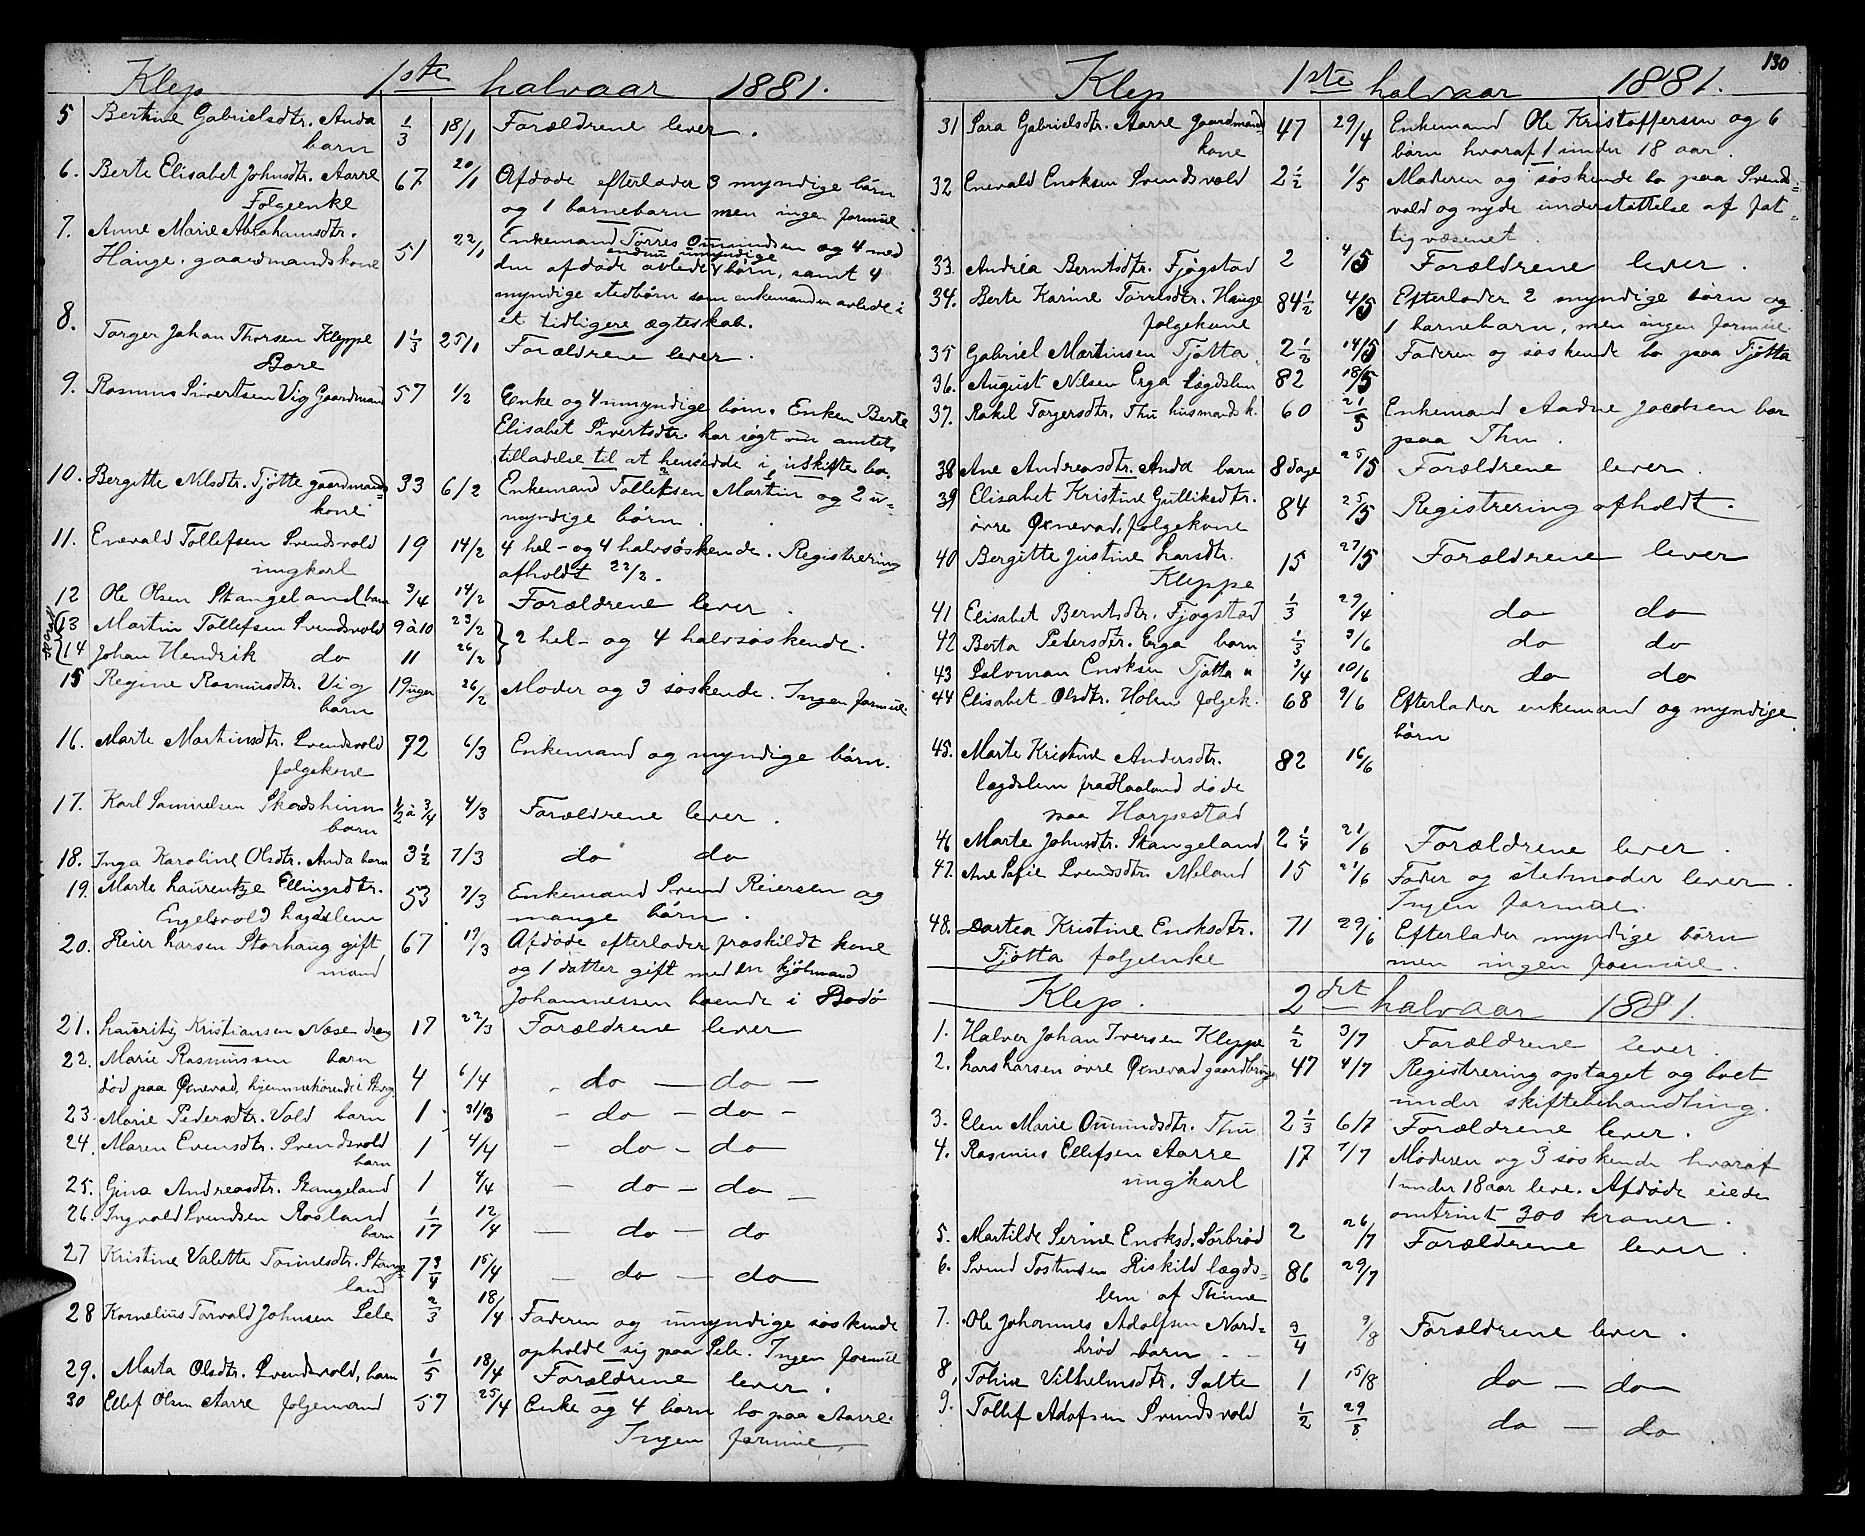 Klep 1ste halvaar 1881.
5 Bertine Gabrielsdtr. Anda 1/3 18/1 Forældrene lever.
barn
6. Berte Elisabet Johnsdtr. Aarre 67 20/1 Afdøde efterlader 3 myndige børn
Følgeenke og 1 barnebarn men ingen formue
7. Anne Marie Abrahamsdtr. 51 22/1 Enkemand Tørres Omundsen og 4 med
Hauge. gaardmandskone den afdøde avlede endnu umyndige børn, samt 4
myndige stedbørn som enkemanden avlede i
et tidligere ægteskab.
8. Torger Johan Thorsen Kleppe 1 1/3 25/1 Forældrene lever.
Bore
9. Rasmus Sivertsen Vig Gaardmand 57 1/2 Enke og 4 umyndige børn. Enken Berte
Elisabet Sivertsdtr. har søgt om amtets
tilladelse til at hensidde i uskiftet bo.
10. Bergitte Nilsdtr. Tjøtte gaardmands 33 6/2 Enkemand Tollefsen Martin og 2 u-
kone myndige børn.
11. Enevald Tollefsen Svendsvold 19 14/2 4 hel- og 4 halvsøskende. Registrering
ungkarl afholdt 22/2.
12 Ole Olsen Stangeland barn 3/4 14/2 Forældrene lever.
13 Martin Tollefsen Svendsvold 9 à 10 23/2 2 hel- og 4 halvsøskende.
14 Johan Hendrik do 11 26/2
15 Regine Rasmusdtr. Vig 19 uger 26/2 Moder og 3 søskende. Ingen formue
barn
16. Marte Martinsdtr. Svendsvold 72 6/3 Enkemand og myndige børn.
følgekone
17. Karl Samuelsen Skadsheim 1/2 à 3/4 4/3 Forældrene lever.
barn
18. Inga Karoline Olsdtr. Anda barn 3 1/2 7/3 do do
19. Marte Laurentze Ellingsdtr. 53 7/3 Enkemand Svend Reiersen og
Engelsvold Lægdslem mange børn.
20. Reier Larsen Storhaug gift 67 19/3 Afdøde efterlader fraskildt kone
mand og 1 datter gift med en kjøbmand
Johannessen boende i Bodø
21. Lauritz Kristiansen Næse dreng 17 22/3 Forældrene lever
22. Marie Rasmussen barn
død paa Øxnevad, hjemmehørende i 4 6/4 - do — do —
23. Marie Pedersdtr. Vold barn 1 31/3 - do - do -
24. Maren Evensdtr. Svendsvold 1 4/4 - do - do
barn
25. Gina Andreasdtr. Stangeland 1 4/4 - do - do -
26. Ingvald Svendsen Rosland 1/17 12/4 — do — do
barn
27 Kristine Valette Tønnesdtr. Stange- 7 3/4 15/4 — do — do
land
28 Kornelius Torvald Johnsen Sele 2/3 18/4 Faderen og umyndige søskende
opholde sig paa Sele. Ingen formue
29. Marta Olsdtr. Svendsvold, barn 1/5 18/4 Forældrene lever.
30 Ellef Olsen Aarre følgemand 57 25/4 Enke og 4 børn bo paa Aarre.
Ingen formue.
130
Klep 1ste halvaar 1881.
31 Sara Gabrielsdtr. Aarre gaardmands 47 29/4 Enkemand Ole Kristoffersen og 6
kone børn hvoraf 1 under 18 aar.
32 Enevald Enoksen Svendsvold 2 1/2 1/5 Moderen og søskende bo paa Svends-
vold og nyde understøttelse af fat-
tigvæsenet.
33. Andrea Berntsdtr. Fjøgstad 2 4/5 Forældrene lever.
34. Berte Karine Tørresdtr. Hauge 84 1/2 4/5 Efterlader 2 myndige børn og
følgekone 1 barnebarn, men ingen formue.
35 Gabriel Martinsen Tjøtta 2 1/2 14/5 Faderen og søskende bo paa Tjøtta
36. August Nilsen Erga Lægdslem 82 18/5
37. Rakel Torgersdtr. Thu husmandsk. 60 21/5 Enkemand Aadne Jacobsen bor
paa Thu.
38 Ane Andreasdtr. Anda barn 8 dage 25/5 Forældrene lever.
39 Elisabet Kristine Gulliksdtr. 84 25/5 Registrering afholdt.
øvre Øxnevad, følgekone
40 Bergitte Justine Larsdtr. 15 27/5 Forældrene lever
Kleppe
41 Elisabet Berntsdtr. Fjøgstad 1/3 29/4 do do
42 Berta Pedersdtr. Erga barn 1/3 3/6 do do
43 Salomon Enoksen Tjøtta " 3/4 10/6 do do
44 Elisabet Olsdtr. Holen følgek. 68 9/6 Efterlader enkemand og myndige
børn
45. Marte Kristine Andersdtr. 82 16/6
lægdslem fra Haaland døde
paa Horpestad
46 Marte Johnsdtr. Stangeland 2 1/4 21/6 Forældrene lever.
47. Ane Sofie Svendsdtr. Meland 15 21/6 Fader og stedmoder lever.
Ingen formue.
48. Dortea Kristine Enoksdtr. 71 29/6 Efterlader myndige børn
Tjøtta følgeenke men ingen formue.
Klep. 2det halvaar 1881.
1. Halver Johan Iversen Kleppe 1/2 3/7 Forældrene lever.
2. Lars Larsen øvre Øxnevad gaardbruger 47 4/7 Registrering optaget og boet
under skiftebehandling.
3. Elen Marie Omundsdtr. Thu 2 1/3 6/7 Forældrene lever.
4. Rasmus Ellefsen Aarre 17 7/7 Moderen og 3 søskende hvoraf
ungkarl 1 under 18 aar leve. Afdøde eiede
omtrint 300 kroner.
5. Martilde Serine Enoksd. Sørbrød 2 26/7 Forældrene lever.
6. Svend Tostensen Riskild lægds- 86 29/7
lem af Thime
7. Ole Johannes Adolfsen Nord- 3/4 9/8 Forældrene lever.
brød barn
8, Tobine Vilhelmsdtr. Salte 1 15/8 do — do
9. Tollef Adofsen Svendsvold 1/2 29/8 do — do